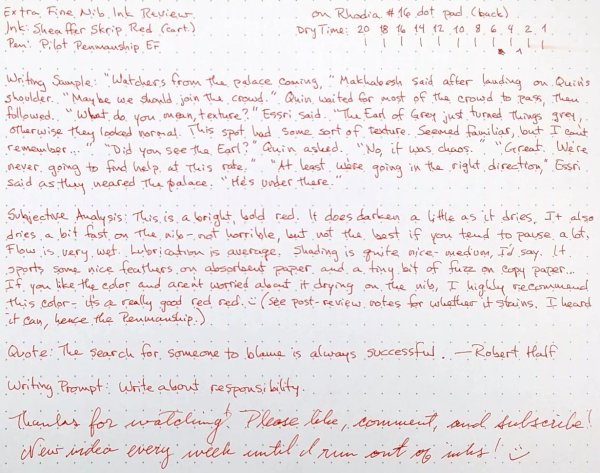 Extra Fine Nib Ink Review
on Rhodia #16 dot pad (back)
Ink: Sheaffer Skrip Red (cart.)
Dry Time: 20 18 16 14 12 10 8 6 4 2 1
Pen: Pilot Penmanship EF
Writing Sample: "Watchers from the palace coming," Makhabesh said after landing on Quin's
shoulder. "Maybe we should join the crowd." Quin waited for most of the crowd to pass, then
followed. "What do you mean, texture?" Essri said. "The Earl of Grey just turned things grey,
otherwise they looked normal. This spot had some sort of texture. Seemed familiar, but I can't
remember..." "Did you see the Earl?" Quin asked. "No, it was chaos." "Great. We're
never going to find help at this rate." "At least we're going in the right direction," Essri
said as they neared the palace. "He's under there."
Subjective Analysis: This is a bright, bold red. It does darken a little as it dries. It also
dries a bit fast on the nib - not horrible, but not the best if you tend to pause a lot.
Flow is very wet. Lubrication is average. Shading is quite nice - medium, I'd say. It
sports some nice feathers on absorbent paper and a tiny bit of fuzz on copy paper...
If you like the color and aren't worried about it drying on the nib, I highly recommend
this color - it's a really good red red. :) (see post-review notes for whether it stains. I heard
it can, hence the Penmanship.)
Quote: The search for someone to blame is always successful. —Robert Half
Writing Prompt: Write about responsibility.
Thanks for watching! Please like, comment, and subscribe!
New video every week until I run out of inks! :)